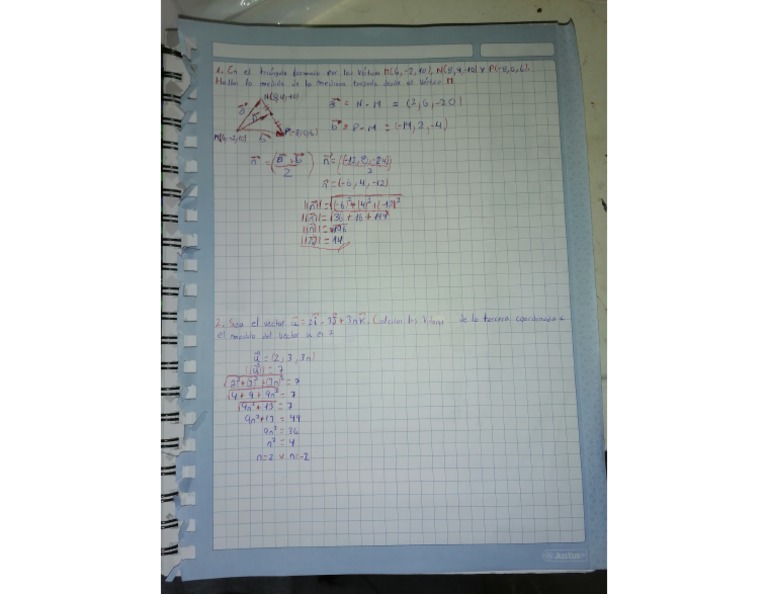 1. En el triángulo formado por los vértices M(6,-2,10), N(8,4,-10) y P(-8,0,6).
Hallar la medida de la mediana trazada desde el vértice M.
N(8,4,-10)
a⃗ = N - M = (2, 6, -20)
b⃗ = P - M = (-14, 2, -4)
M(6,-2,10) b⃗ P(-8,0,6)
n⃗ = (a⃗ + b⃗)/2 n⃗ = (-12, 8, -24)/2
n⃗ = (-6, 4, -12)
||n⃗|| = √(-6)² + (4)² + (-12)²
||n⃗|| = √36 + 16 + 144
||n⃗|| = √196
||n⃗|| = 14
2. Sea el vector u⃗ = 2i⃗ - 3j⃗ + 3nk⃗. Calcular los de la tercera coordenada
el modulo del vector u es
u⃗ = (2, 3, 3n)
||u⃗|| = 7
√2² + (3)² + (3n)² = 7
√4 + 9 + 9n² = 7
√9n² + 13 = 7
9n² + 13 = 49
9n² = 36
n² = 4
n = 2 v n = -2
Justus